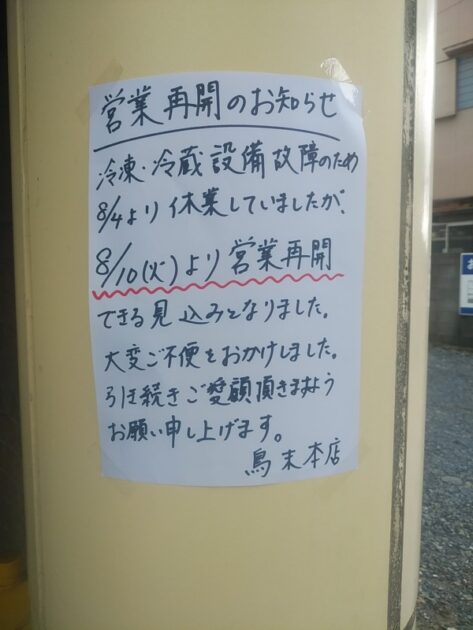 営業再開のお知らせ
冷凍・冷蔵設備故障のため
8/4より休業していましたが、
8/10(火)より営業再開
できる見込みとなりました。
大変ご不便をおかけしました。
引き続きご愛顧頂きますよう
お願い申し上げます。
鳥末本店